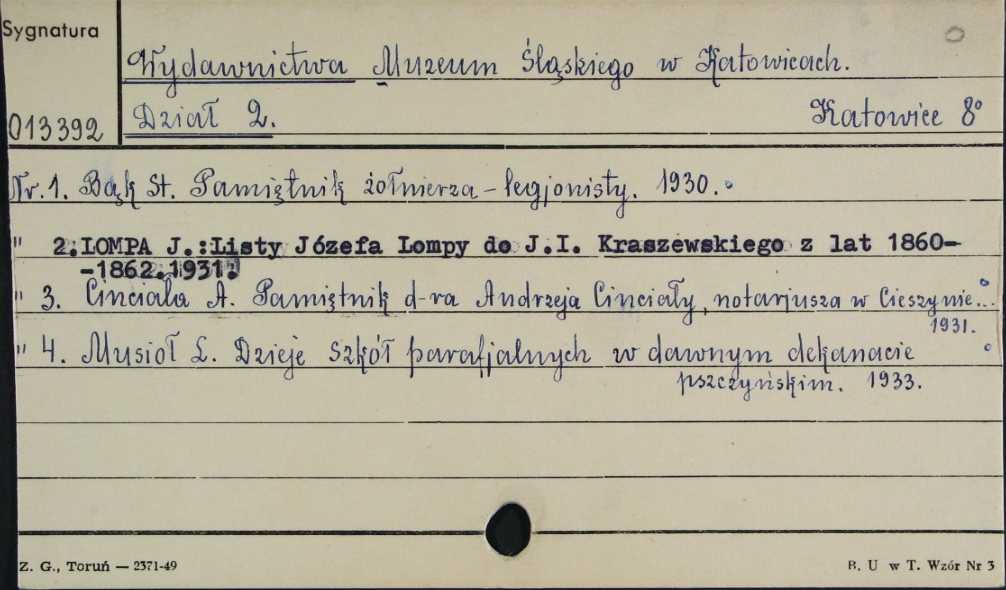 Sygnatura
Wydawnictwa Muzeum Śląskiego w Katowicach.
013392 Dział 2. Katowice 8°
Nr. 1. Bąk St. Pamiętnik żołnierza - legjonisty. 1930.
" 2. LOMPA J.: Listy Józefa Lompy do J.I. Kraszewskiego z lat 1860-
-1862. 1931.
" 3. Cinciała A. Pamiętnik d-ra Andrzeja Cinciały, notarjusza w Cieszynie..
1931.
" 4. Musioł L. Dzieje szkół parafjalnych w dawnym dekanacie
pszczyńskim. 1933.
Z. G., Toruń — 2371-49 B. U w T. Wzór Nr 3